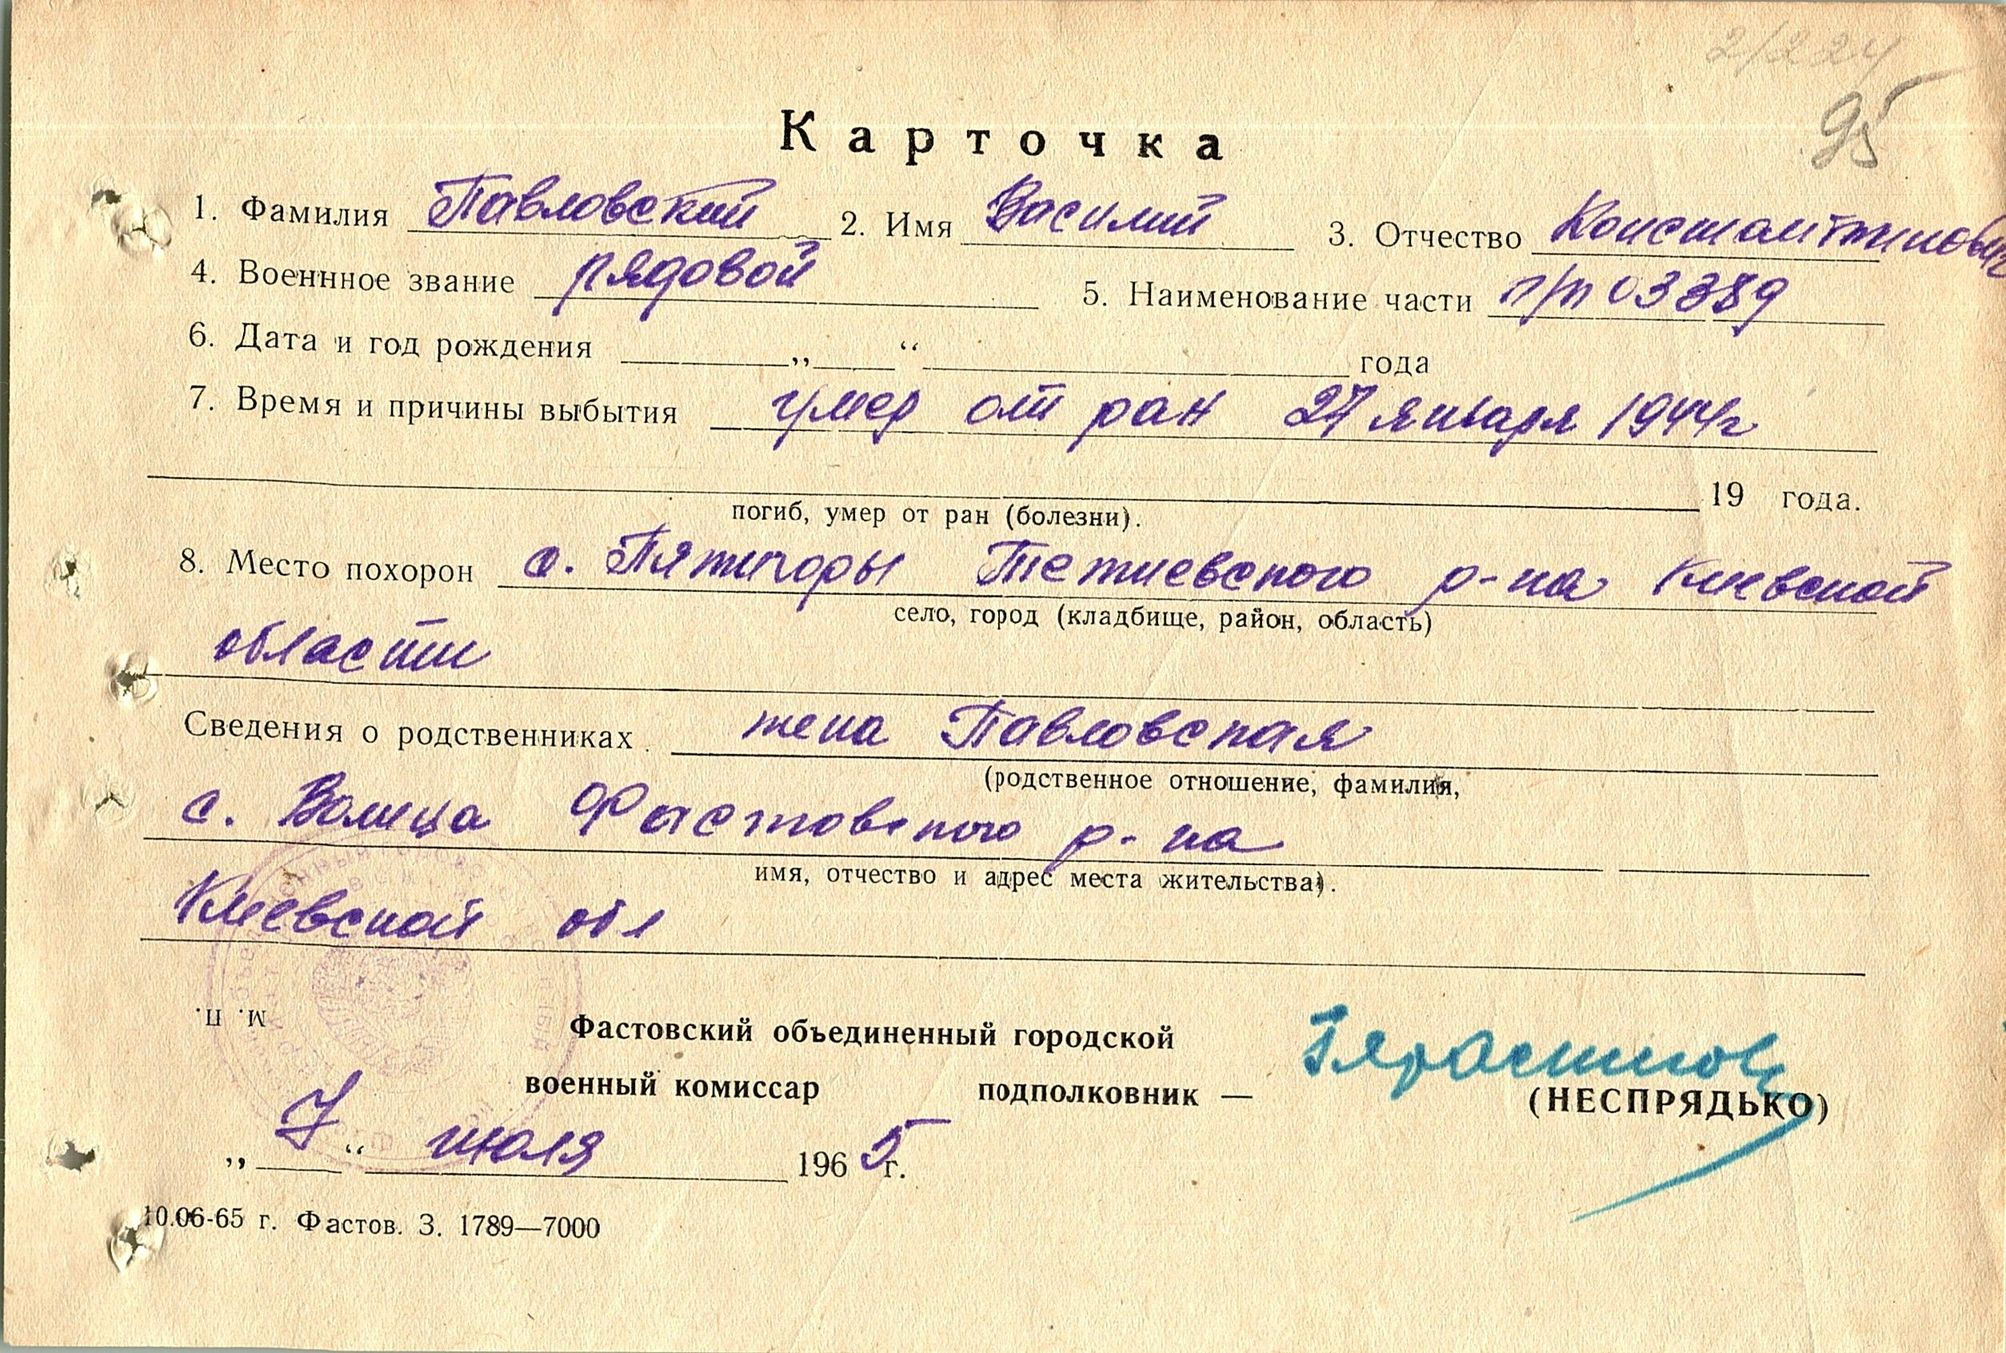 2/224
95
Карточка
1. Фамилия Павловский 2. Имя Василий 3. Отчество Константинович
4. Военнное звание рядовой 5. Наименование части п/п 03389
6. Дата и год рождения „ “ года
7. Время и причины выбытия умер от ран 27 января 1944г
19 года.
погиб, умер от ран (болезни).
8. Место похорон с. Пятигоры Тетиевского р-на Киевской
село, город (кладбище, район, область)
области
Сведения о родственниках жена Павловская
(родственное отношение, фамилия,
с. Волица Фастовского р-на
имя, отчество и адрес места жительства).
Киевской обл
М. П.
Фастовский объединенный городской
военный комиссар подполковник —
(НЕСПРЯДЬКО)
„ 7 “ июля 1965 г.
10.06-65 г. Фастов. З. 1789—7000